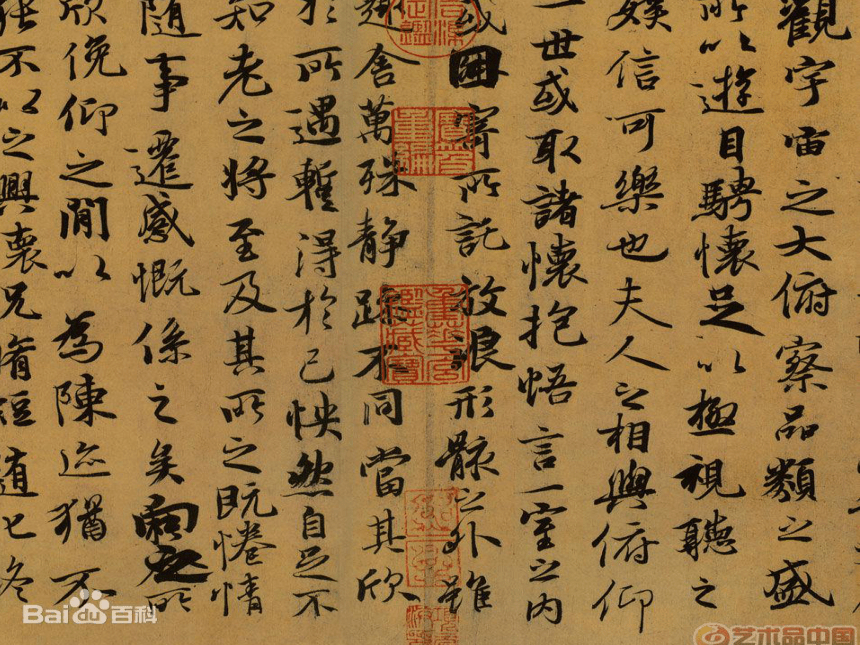 觀宇宙之大俯察品類之盛
所以遊目騁懷足以極視聽之
娛信可樂也夫人之相與俯仰
一世或取諸懷抱悟言一室之內
或因寄所託放浪形骸之外雖
趣舍萬殊靜躁不同當其欣
於所遇蹔得於己怏然自足不
知老之將至及其所之既惓情
隨事遷感慨係之矣向之所
欣俛仰之閒以為陳迹猶不
能不以之興懷況脩短隨化終
Bai百科
艺术品中国